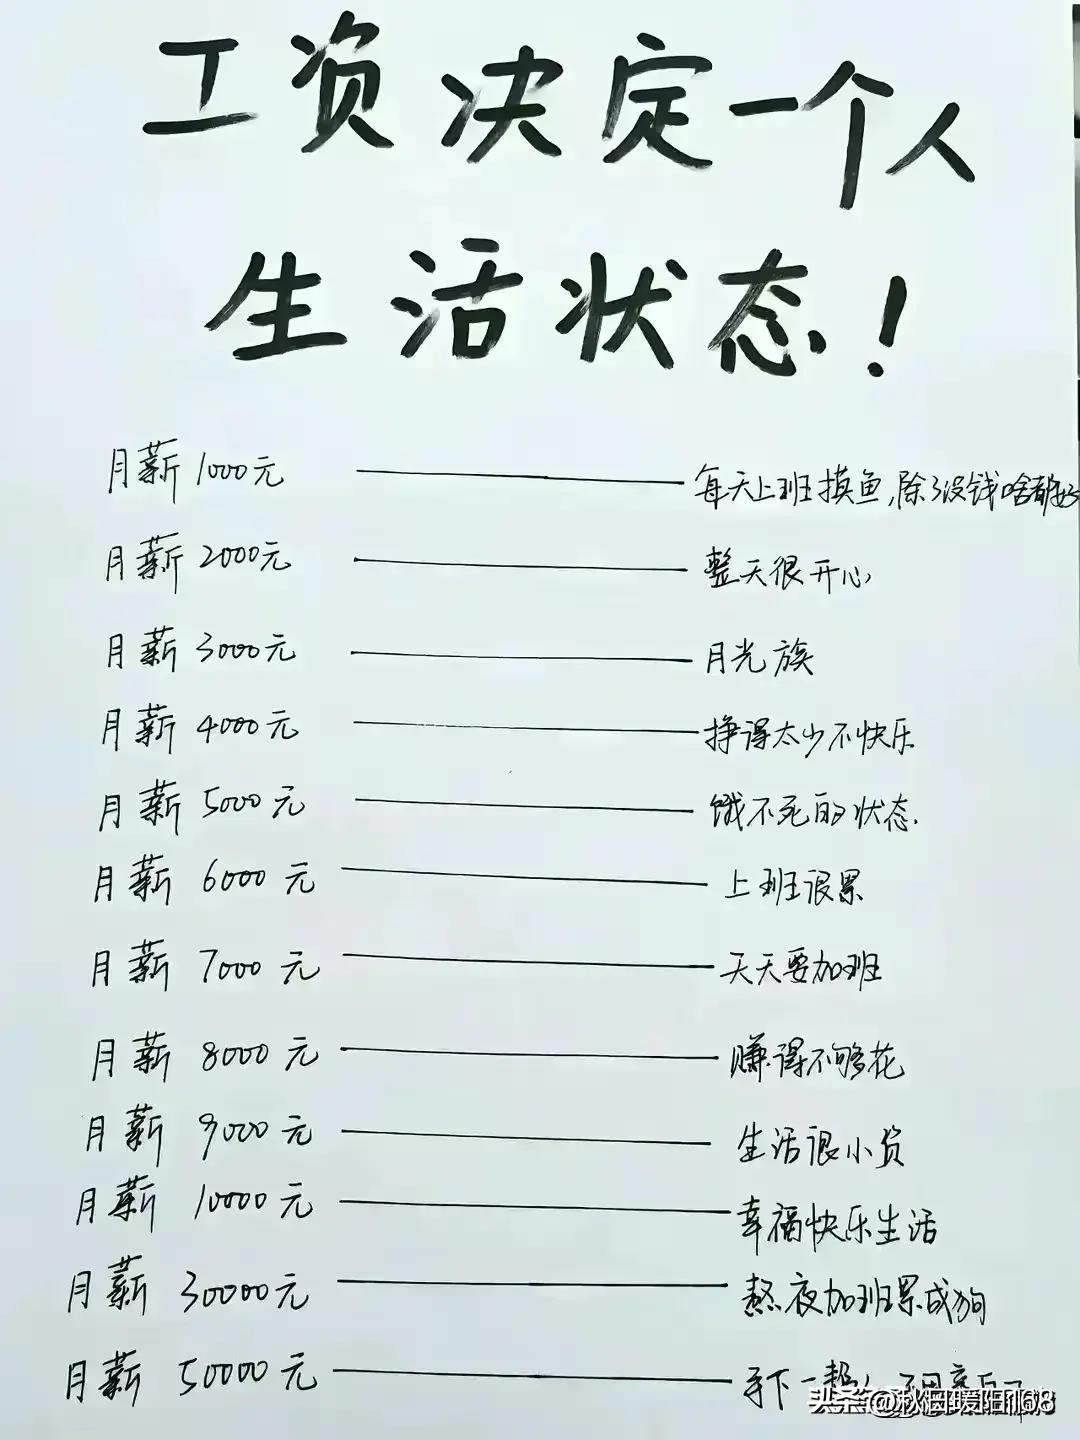 工资决定一个人
生活状态!
月薪 1000元 每天上班摸鱼,除了没钱啥都好
月薪 2000元 整天很开心
月薪 3000元 月光族
月薪 4000元 挣得太少不快乐
月薪 5000元 饿不死的状态.
月薪 6000元 上班很累
月薪 7000元 天天要加班
月薪 8000元 赚得不够花
月薪 9000元 生活很小资
月薪 10000元 幸福快乐生活
月薪 30000元 熬夜加班累成狗
月薪 50000元 手下一
头条@秋日暖阳168